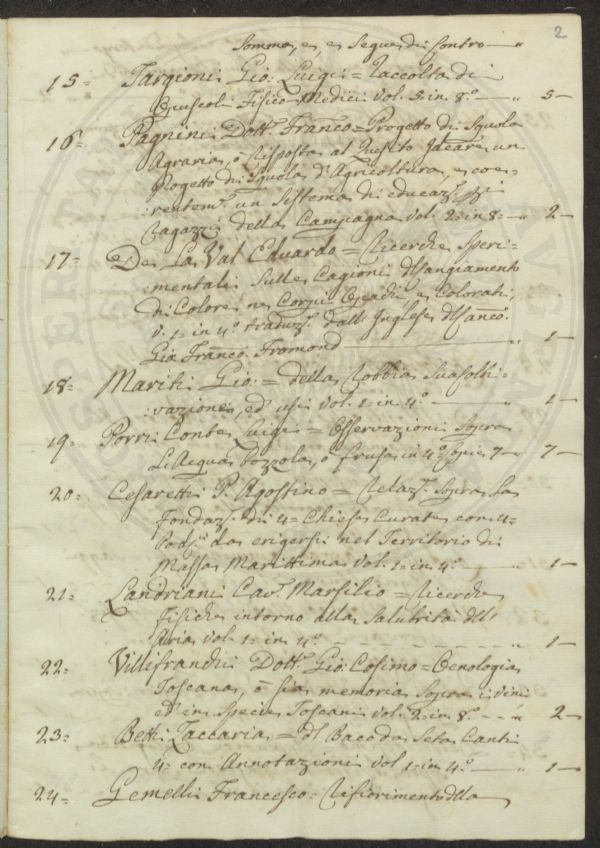 2
Somma, e, e Segue di contro — "
15= Targioni Gio: Luigi = Raccolta di
Opuscoli Fisico-Medici Vol. 5. in 8.° — " 5 —
16= Pagnini Dott.r Fran.co = Progetto di Squola
Agraria, o Risposta al Quesito Ideare un
Progetto di Squola d'Agricoltura, e coe-
rentem.e un Sistema di educaz.e pei
Ragazzi della Campagna vol. 2= in 8= — " 2 —
17= De La Val Eduardo = Ricerche Speri-
mentali Sulle Cagioni del Cangiamento
di Colore ne Corpi Opachi, e Colorati,
v. 1= in 4.° traduz.e dall'Inglese del Can.co
Gio: Fran.co Fromond — " 1 —
18= Mariti Gio: = della Robbia Sua Colti-
vazione, ed usi vol. 1= in 4.° — " 1 —
19= Porri Conte Luigi = Osservazioni Sopra
L'Acqua Pozzola, o frusa in 4.° Copie 7 — " 7 —
20= Cesaretti P. Agostino = Relaz.e Sopra La
Fondaz.e di 4= Chiese Curate con 4=
da erigersi nel Territorio di
Massa Marittima Vol. 1= in 4.° — " 1 —
21= Landriani Cav.r Marsilio = Ricerche
Fisiche intorno alla Salubrità dell'
Aria vol. 1= in 4.° — 1 —
22= Villifranchi Dott.r Gio: Cosimo = Oenologia
Toscana, o Sia memoria Sopra i vini
ed in Specie Toscani vol. 2= in 8.° — " 2 —
23= Betti Zaccaria = Il Baco da Seta Canti
4= con Annotazioni vol 1= in 4.° — " 1 —
24= Gemelli Francesco = Rifiorimento della